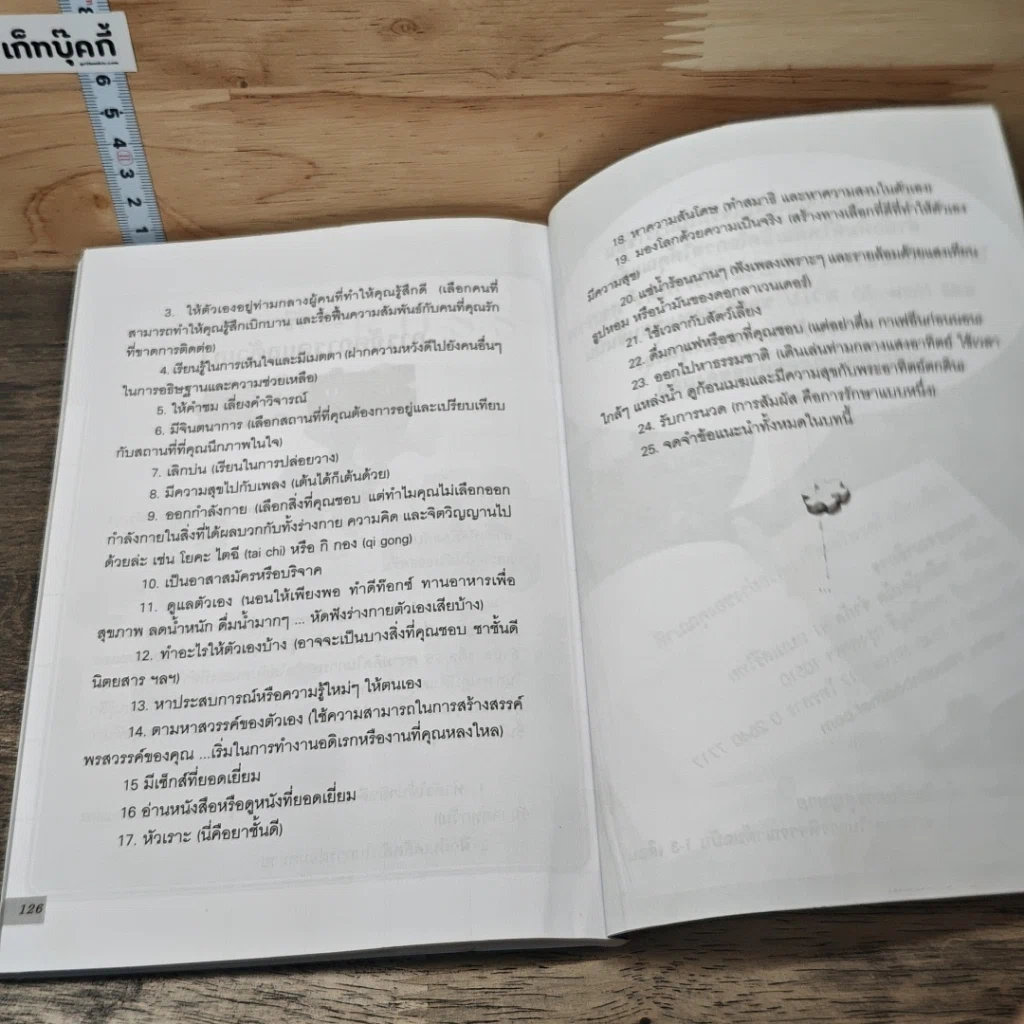 เก็ทบุ๊คกี้
6
5
4
3
2
1
3. ให้ตัวเองอยู่ท่ามกลางผู้คนที่ทำให้คุณรู้สึกดี (เลือกคนที่
สามารถทำให้คุณรู้สึกเบิกบาน และรื้อฟื้นความสัมพันธ์กับคนที่คุณรัก
ที่ขาดการติดต่อ)
4. เรียนรู้ในการเห็นใจและมีเมตตา (ฝากความหวังดีไปยังคนอื่นๆ
ในการอธิษฐานและความช่วยเหลือ)
5. ให้คำชม เลี่ยงคำวิจารณ์
6. มีจินตนาการ (เลือกสถานที่ที่คุณต้องการอยู่และเปรียบเทียบ
กับสถานที่ที่คุณนึกภาพในใจ)
7. เลิกบ่น (เรียนในการปล่อยวาง)
8. มีความสุขไปกับเพลง (เต้นได้ก็เต้นด้วย)
9. ออกกำลังกาย (เลือกสิ่งที่คุณชอบ แต่ทำไมคุณไม่เลือกออก
กำลังกายในสิ่งที่ได้ผลบวกกับทั้งร่างกาย ความคิด และจิตวิญญาณไป
ด้วยล่ะ เช่น โยคะ ไตฉี (tai chi) หรือ กิ กอง (qi gong)
10. เป็นอาสาสมัครหรือบริจาค
11. ดูแลตัวเอง (นอนให้เพียงพอ ทำดีท๊อกซ์ ทานอาหารเพื่อ
สุขภาพ ลดน้ำหนัก ดื่มน้ำมากๆ ... หัดฟังร่างกายตัวเองเสียบ้าง)
12. ทำอะไรให้ตัวเองบ้าง (อาจจะเป็นบางสิ่งที่คุณชอบ ชาชั้นดี
นิตยสาร ฯลฯ)
13. หาประสบการณ์หรือความรู้ใหม่ๆ ให้ตนเอง
14. ตามหาสวรรค์ของตัวเอง (ใช้ความสามารถในการสร้างสรรค์
พรสวรรค์ของคุณ ...เริ่มในการทำงานอดิเรกหรืองานที่คุณหลงใหล)
15 มีเซ็กส์ที่ยอดเยี่ยม
16 อ่านหนังสือหรือดูหนังที่ยอดเยี่ยม
17. หัวเราะ (นี่คือยาชั้นดี)
126
18. หาความสันโดษ (ทำสมาธิ และหาความสงบในตัวเอง)
19. มองโลกด้วยความเป็นจริง (สร้างทางเลือกที่ดีที่ทำให้ตัวเอง
มีความสุข)
20. แช่น้ำร้อนนานๆ (ฟังเพลงเพราะๆ และรายล้อมด้วยแสงเทียน
ธูปหอม หรือน้ำมันของดอกลาเวนเดอร์)
21. ใช้เวลากับสัตว์เลี้ยง
22. ดื่มกาแฟหรือชาที่คุณชอบ (แต่อย่าดื่ม กาแฟอื่นก่อนนอน)
23. ออกไปหาธรรมชาติ (เดินเล่นท่ามกลางแสงอาทิตย์ ใช้เวลา
ใกล้ๆ แหล่งน้ำ ดูก้อนเมฆและมีความสุขกับพระอาทิตย์ตกดิน)
24. รับการนวด (การสัมผัส คือการรักษาแบบหนึ่ง)
25. จดจำข้อแนะนำทั้งหมดในบทนี้